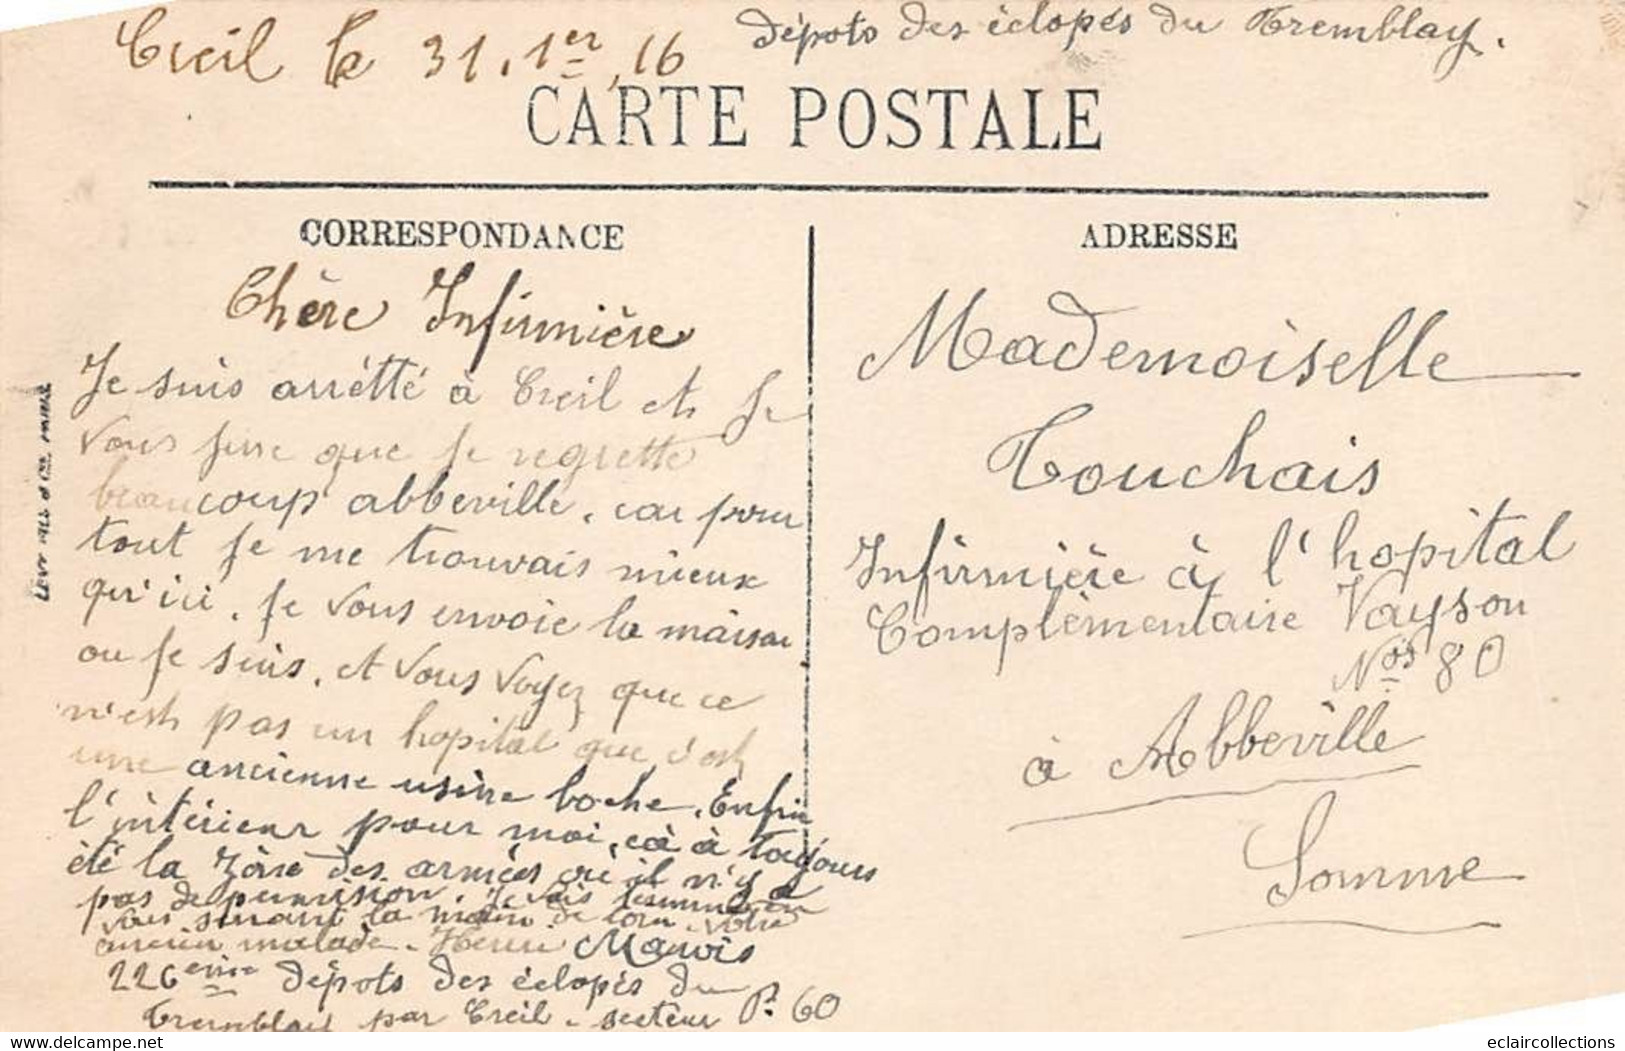 Creil le 31. 1er. 16
dépots des éclopés du Tremblay.
CARTE POSTALE
CORRESPONDANCE
Chère Infirmière
Je suis arrétté à Creil et Je
vous jure que je regrette
beaucoup abbeville, car pour
tout je me trouvais mieux
qu'ici, je vous envoie la maison
ou je suis. et vous voyez que ce
n'est pas un hopital que c'est
une ancienne usine boche. Enfin
l'intérieur pour moi, ça à toujours
été la zône des armées où il n'y a
pas de permision. Je vais terminer en
vous serrant la main de loin. votre
ancien malade. Henri Mauvis
226eme dépots des éclopés du
Tremblay par Creil - secteur P. 60
LEVY FILS & Cie PARIS
ADRESSE
Mademoiselle
Touchais
Infirmière à l'hopital
Complémentaire Vayson
Nos 80
à Abbeville
Somme
eclaircollections